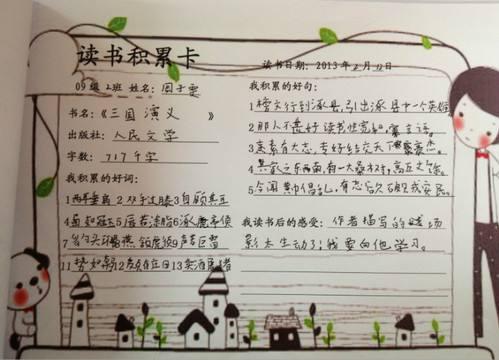 读书积累卡
读书日期：2013年2月12日
09级2班 姓名：周子雯
书名：《三国演义》
出版社：人民文学
字数：717千字
我积累的好词：
1两耳垂肩 2双手过膝 3自顾其耳
4面如冠玉 5唇若涂脂 6涿鹿亭侯
7豹头环眼 8燕颔虎须 9声若巨雷
11势如奔马
我积累的好句：
1榜文行到涿县，引出涿县中一个英雄
2那人不甚好读书，性宽和，寡言语。
3素有大志，专好结交天下豪杰。
4其家之东南，有一大桑树，高五丈馀。
5今闻黄巾倡乱，有志欲破贼安民。
我读书后的感受：作者描写的战场
影太生动了！我要向他学习。